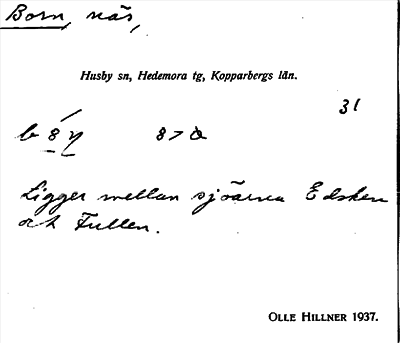 Born, näs,
Husby sn, Hedemora tg, Kopparbergs län.
31
8 > a
Ligger mellan sjöarna Edsken
och Fullen.
OLLE HILLNER 1937.